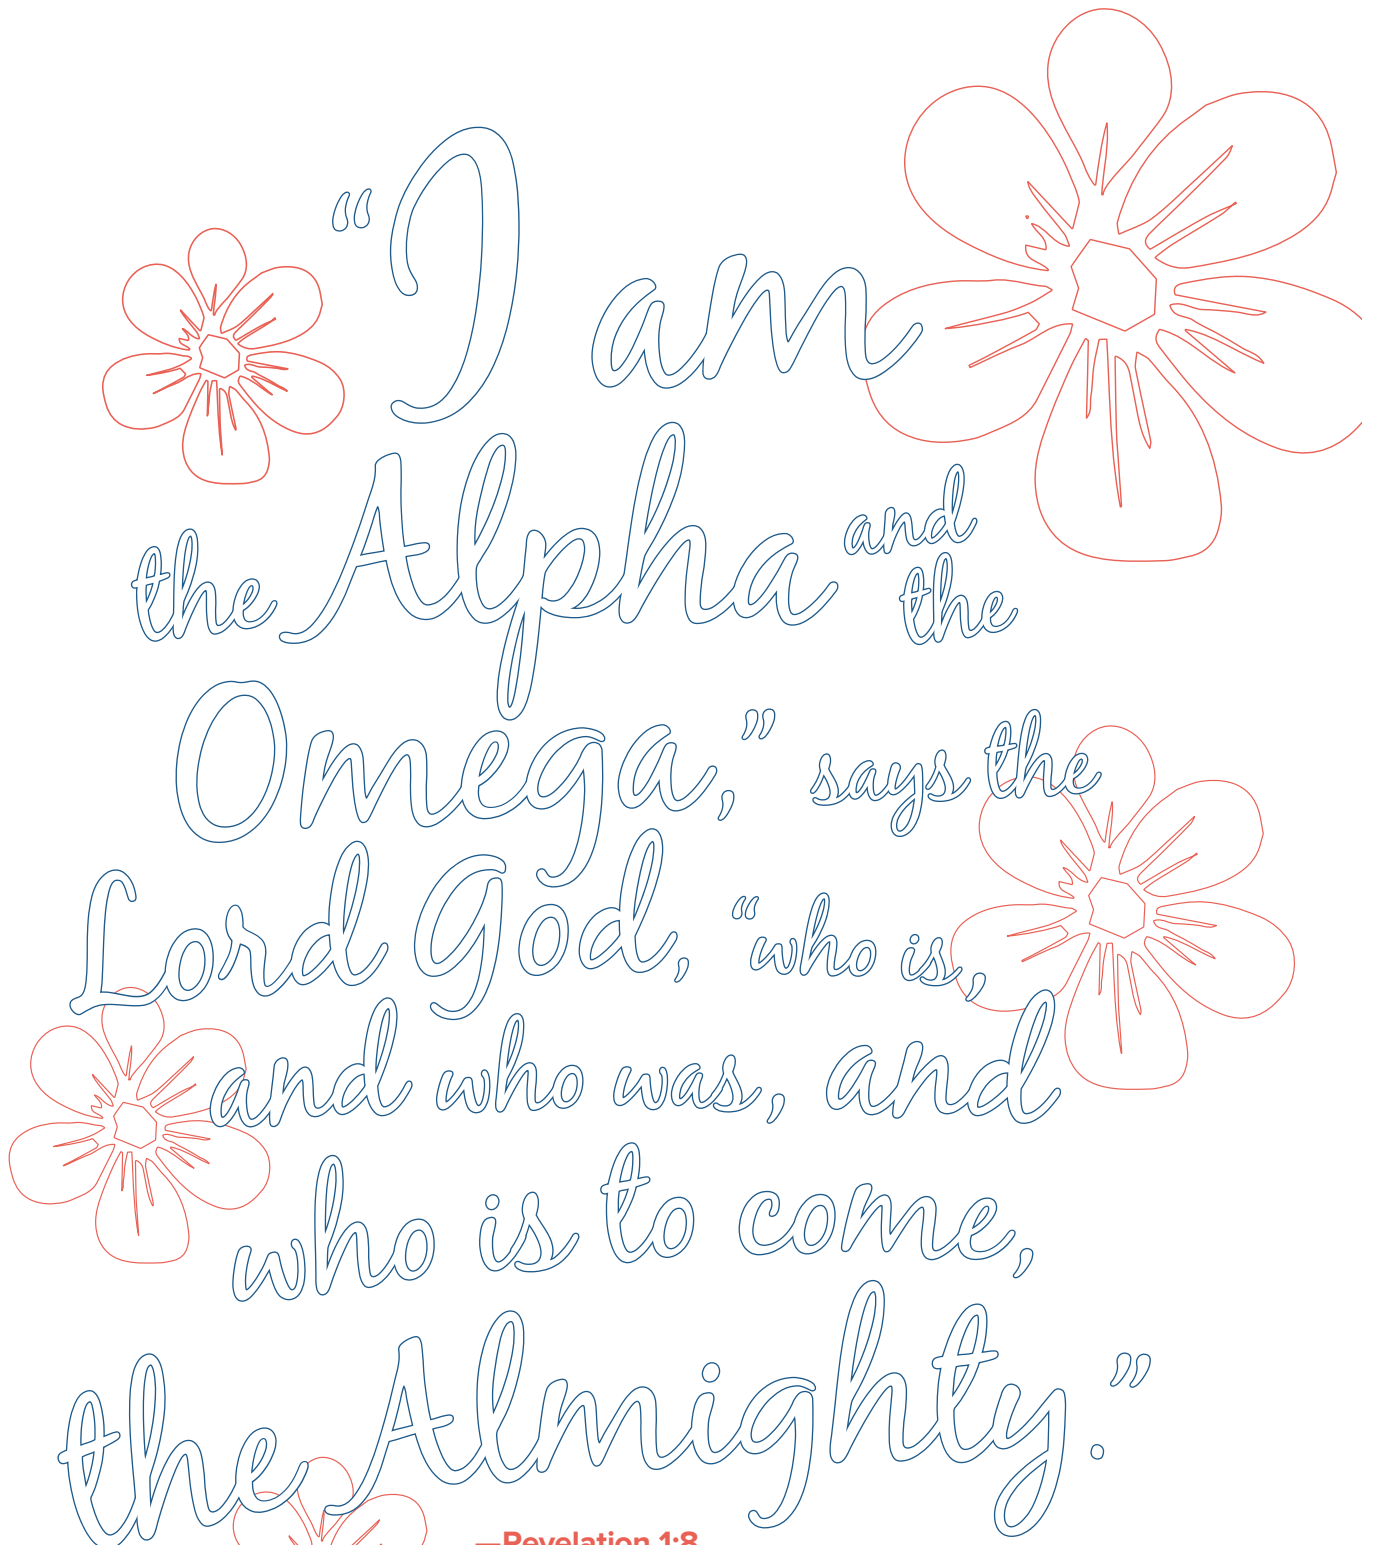 “I am
the Alpha and the
Omega,” says the
Lord God, “who is,
and who was, and
who is to come,
the Almighty.”
—Revelation 1:8